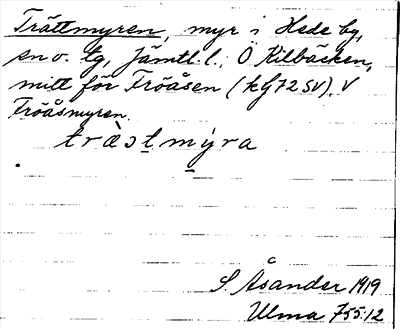 Trättmyren, myr i Hede by,
sn o. tg, Jämtl. l., Ö Kilbäcken,
mitt för Fröåsen (kG72SV), V
Fröåsmyren.
S. Åsander 1919
Ulma 755:12